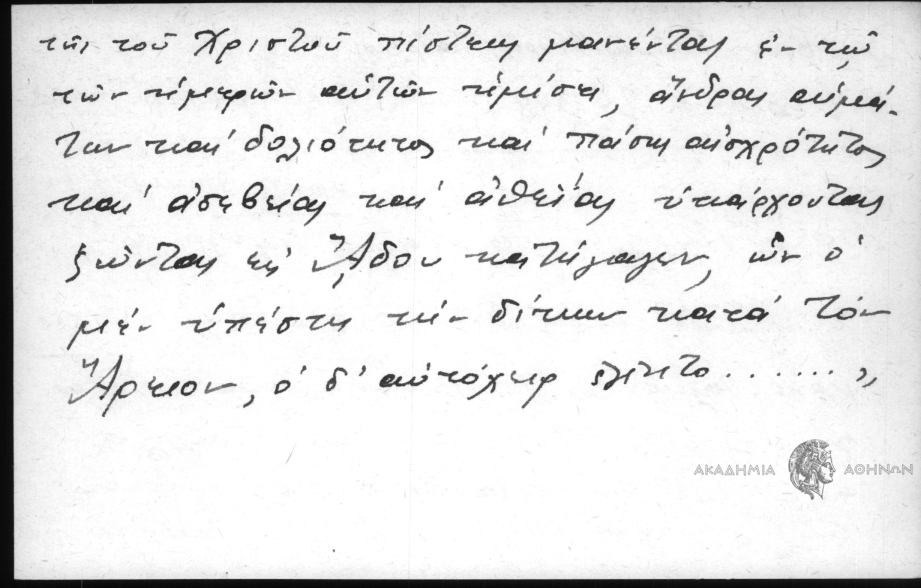 τῆς τοῦ Χριστοῦ πίστεως μανέντας ἐν τῷ
τῶν ἡμερῶν αὐτῶν ἡμίσει, ἄνδρας αἱμά-
των καί δολιότητος καί πάσης αἰσχρότητος
καί ἀσεβείας καί ἀθεΐας ὑπάρχοντας
ζῶντας εἰς Ἅδου κατήγαγεν, ὧν ὁ
μέν ὑπέστη τήν δίκην κατά τόν
Ἄρειον, ὁ δ' αὐτόχειρ ἐγένετο . . . . . . »
ΑΚΑΔΗΜΙΑ ΑΘΗΝΩΝ